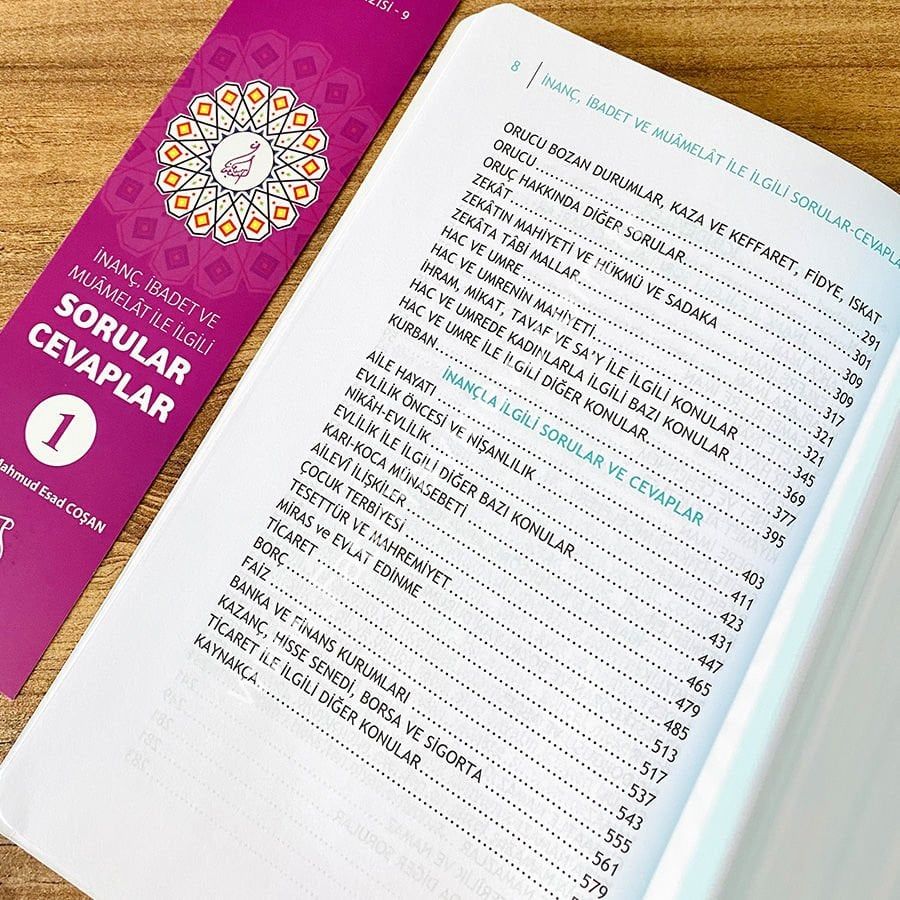 ZISI - 9
İNANÇ, İBADET VE
MUÂMELÂT İLE İLGİLİ
SORULAR
CEVAPLAR
1
Mahmud Esad COŞAN
8 | İNANÇ, İBADET VE MUÂMELÂT İLE İLGİLİ SORULAR-CEVAPLA
ORUCU BOZAN DURUMLAR, KAZA VE KEFFARET, FİDYE, ISKAT
ORUCU 291
ORUÇ HAKKINDA DİĞER SORULAR 301
ZEKÂT 309
ZEKÂTIN MAHİYETİ VE HÜKMÜ VE SADAKA 309
ZEKÂTA TÂBİ MALLAR 317
HAC VE UMRE 321
HAC VE UMRENİN MAHİYETİ 321
İHRAM, MİKAT, TAVAF VE SA'Y İLE İLGİLİ KONULAR 345
HAC VE UMREDE KADINLARLA İLGİLİ BAZI KONULAR 369
HAC VE UMRE İLE İLGİLİ DİĞER KONULAR 377
KURBAN 395
İNANÇLA İLGİLİ SORULAR VE CEVAPLAR
AİLE HAYATI 403
EVLİLİK ÖNCESİ VE NİŞANLILIK 411
NİKÂH-EVLİLİK 423
EVLİLİK İLE İLGİLİ DİĞER BAZI KONULAR 431
KARI-KOCA MÜNASEBETİ 447
AİLEVİ İLİŞKİLER 465
ÇOCUK TERBİYESİ 479
TESETTÜR VE MAHREMİYET 485
MİRAS ve EVLAT EDİNME 513
TİCARET 517
BORÇ 537
FAİZ 543
BANKA VE FİNANS KURUMLARI 555
KAZANÇ, HİSSE SENEDİ, BORSA VE SİGORTA 561
TİCARET İLE İLGİLİ DİĞER KONULAR 579
KAYNAKÇA